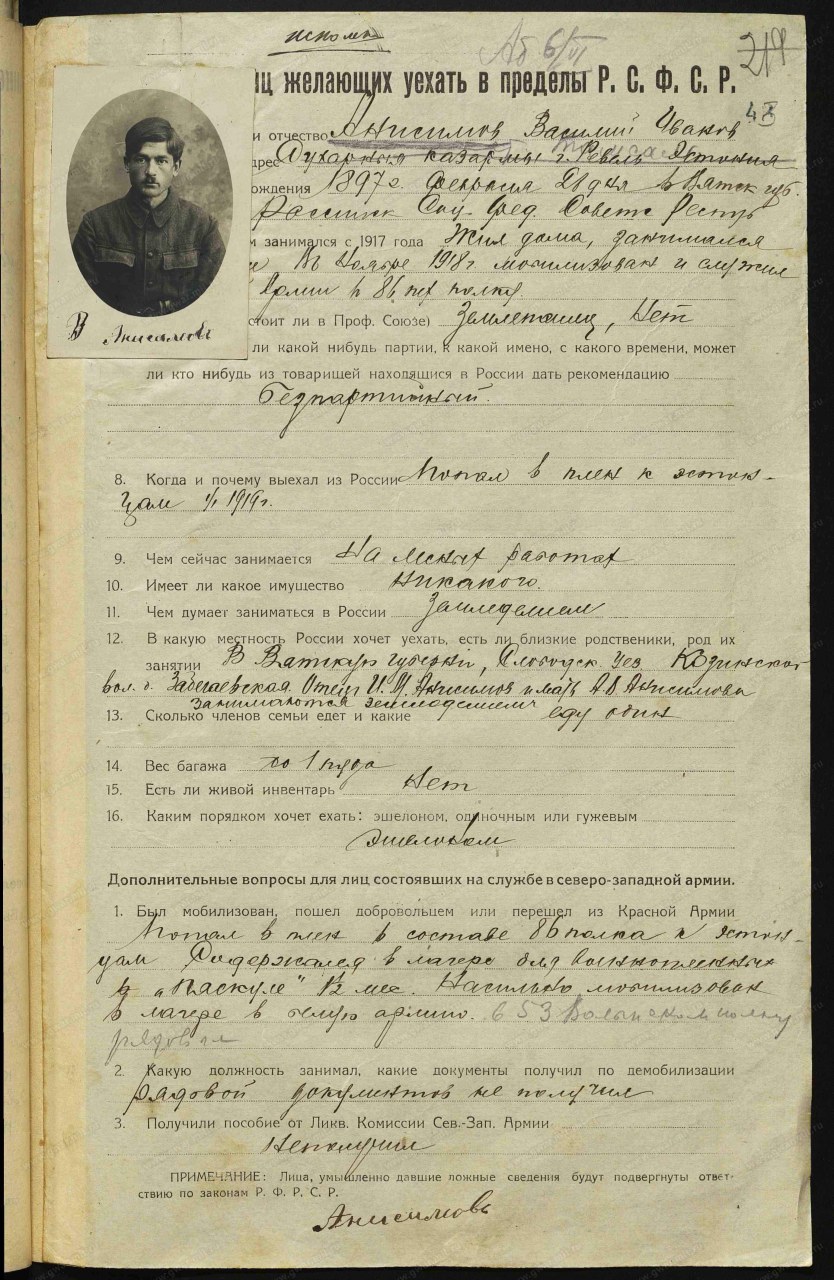 исполн
Аб 6/VI
219
иц желающих уехать в пределы Р. С. Ф. С. Р.
4 X
и отчество Анисимов Василий Иванов
дрес казармы г. Ревель Эстония
ождения 1897 г. февраля 28 дня в Вятск губ.
Россииск Соц. Фед. Советс Респуб
м занимался с 1917 года Жил дома, занимался
В Ноябре 1918 г мобилизован и служил
Армии в 86 пех полку
стоит ли в Проф. Союзе) Землепашец, Нет
ли какой нибудь партии, к какой имено, с какого времени, может
ли кто нибудь из товарищей находящися в России дать рекомендацию
Безпартийный.
В Анисимовъ
8. Когда и почему выехал из России Попал в плен к эстон-
цам 1/I 1919 г.
9. Чем сейчас занимается На работах
10. Имеет ли какое имущество никакого.
11. Чем думает заниматься в России Земледелием
12. В какую местность России хочет уехать, есть ли близкие родственики, род их
занятии В Вятскую губернiю, Слободск. уез
вол. д. Забегаевская Отец И. М. Анисимов и мать А. В. Анисимова
занимаются земледелием
13. Сколько членов семьи едет и какие еду один
14. Вес багажа до 1 пуда
15. Есть ли живой инвентарь Нет
16. Каким порядком хочет ехать: эшелоном, одиночным или гужевым
эшелоном
Дополнительные вопросы для лиц состоявших на службе в северо-западной армии.
1. Был мобилизован, пошел добровольцем или перешел из Красной Армии
Попал в плен в составе 86 полка к эстон-
цам Содержался в лагере для военнопленных
в „Пяскуле" 12 мес. Насильно мобилизован
в лагере в белую армию. в 53 Волынском полку
рядовым
2. Какую должность занимал, какие документы получил по демобилизации
рядовой документов не получил
3. Получили пособие от Ликв. Комиссии Сев.-Зап. Армии
Неполучил
ПРИМЕЧАНИЕ: Лица, умышленно давшие ложные сведения будут подвергнуты ответ-
ствию по законам Р. Ф. Р. С. Р.
Анисимовъ